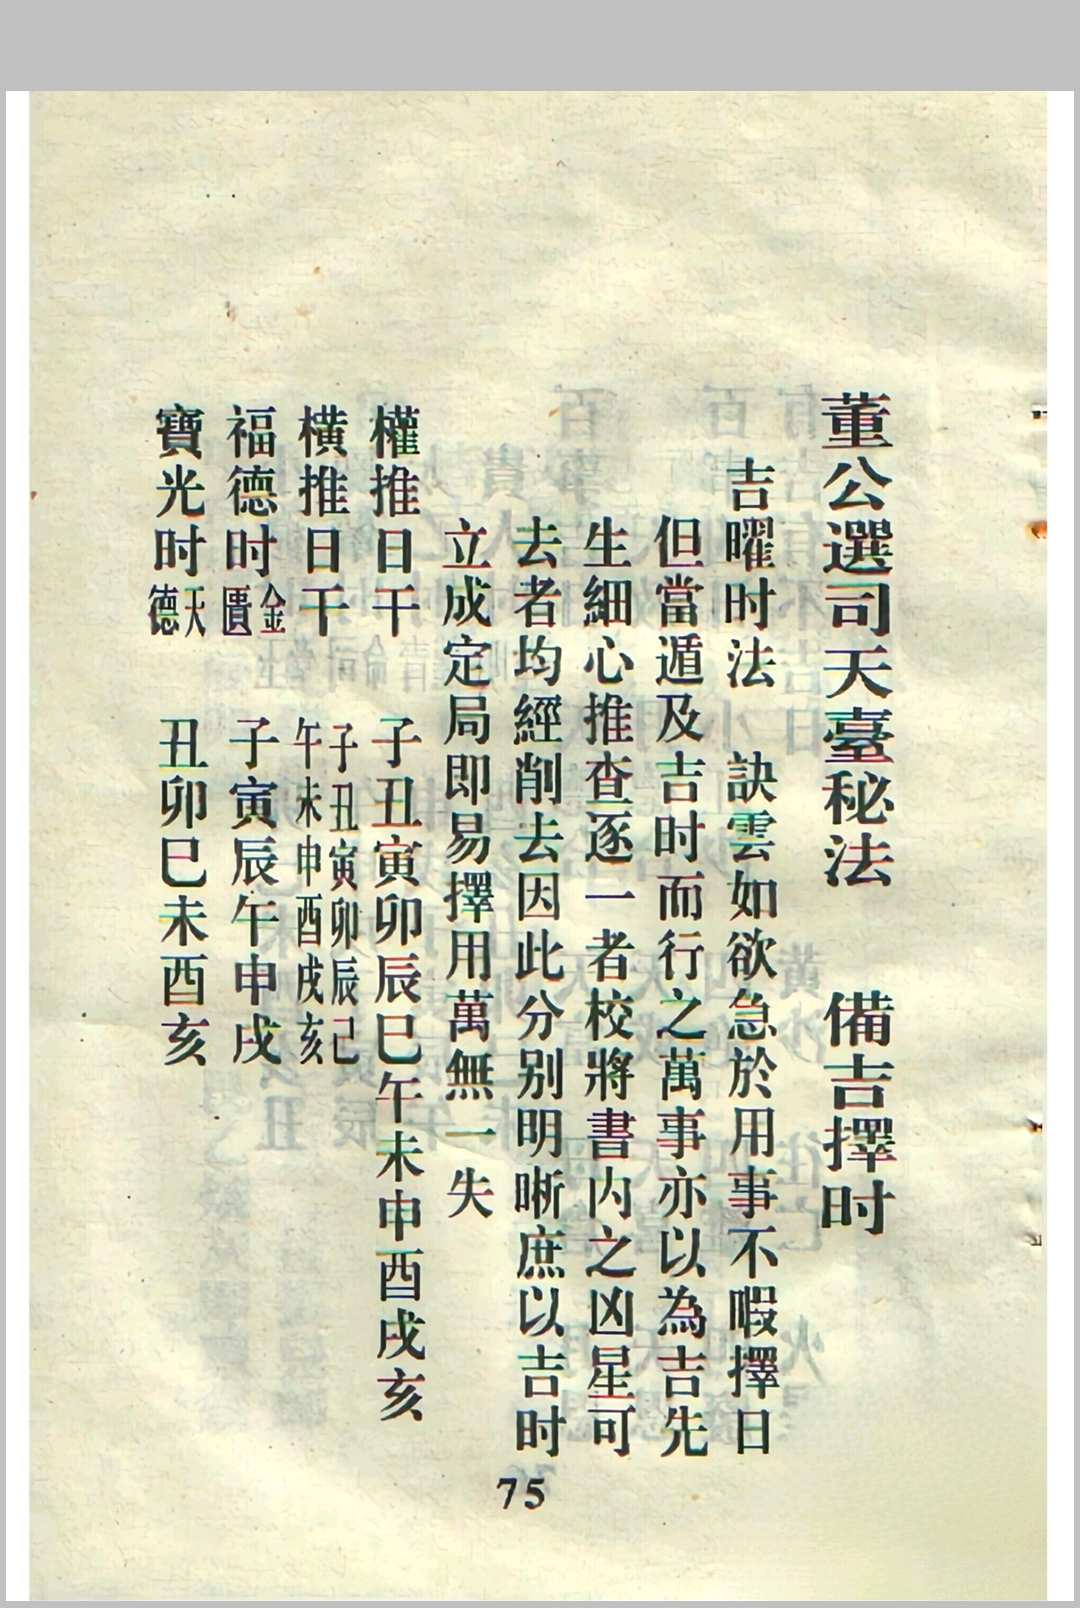 董公選司天臺秘法　備吉擇时
吉曜时法　訣雲如欲急於用事不暇擇日
但當遁及吉时而行之萬事亦以為吉先
生細心推查逐一者校將書内之凶星可
去者均經削去因此分别明晰庶以吉时
立成定局即易擇用萬無一失
權推日干　子丑寅卯辰巳午未申酉戌亥
橫推日干　子丑寅卯辰己
午未申酉戌亥
福德时金匱　子寅辰午申戌
寶光时天德　丑卯巳未酉亥
75